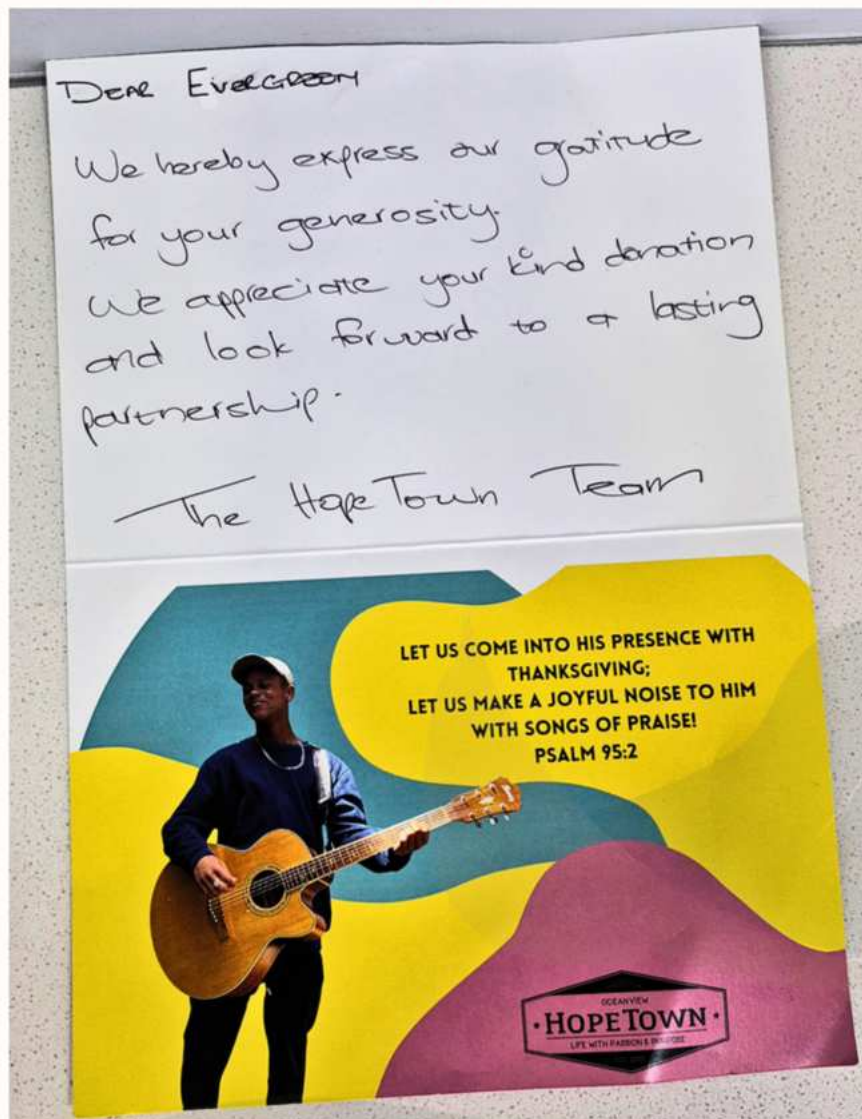 DEAR EVERGREEN
We hereby express our gratitude
for your generosity.
We appreciate your kind donation
and look forward to a lasting
partnership.
The HopeTown Team
LET US COME INTO HIS PRESENCE WITH
THANKSGIVING;
LET US MAKE A JOYFUL NOISE TO HIM
WITH SONGS OF PRAISE!
PSALM 95:2
OCEANVIEW
HOPETOWN
LIFE WITH PASSION & PURPOSE